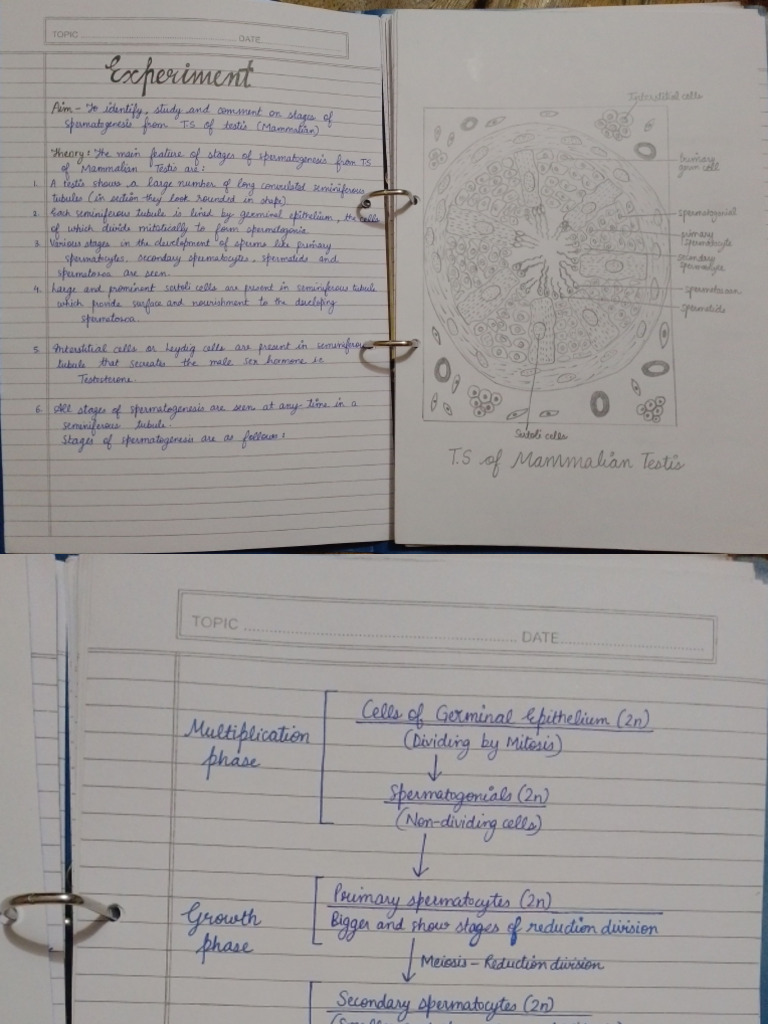 TOPIC DATE
Experiment
Aim - To identify, study and comment on stages of
spermatogenesis from T.S of testis (Mammalian)
Theory: The main feature of stages of spermatogenesis from TS
of Mammalian Testis are:
1. A testis shows a large number of long convulated seminiferous
tubules (in section they look rounded in shape)
2. Each seminiferous tubule is lined by germinal epithelium, the cells
of which divide mitotically to form spermatogonia.
3. Various stages in the development of sperms like primary
spermatocytes, secondary spermatocytes, spermatids and
spermatozoa are seen.
4. Large and prominent sertoli cells are present in seminiferous tubule
which provide surface and nourishment to the developing
spermatozoa.
5. Interstitial cells or Leydig cells are present in seminiferous
tubule that secreates the male sex hormone ie
Testosterone.
6. All stages of spermatogenesis are seen at any-time in a
seminiferous tubule.
Stages of spermatogenesis are as follows:
Interstitial cells
Primary
germ cell
spermatogonial
primary
spermatocyte
secondary
spermatocyte
spermatozoan
spermatids
Sertoli cells
T.S of Mammalian Testis
TOPIC DATE
Multiplication
phase
Cells of Germinal Epithelium (2n)
(Dividing by Mitosis)
Spermatogonials (2n)
(Non-dividing cells)
Growth
phase
Primary spermatocytes (2n)
Bigger and show stages of reduction division
Meiosis - Reduction division
Secondary spermatocytes (2n)